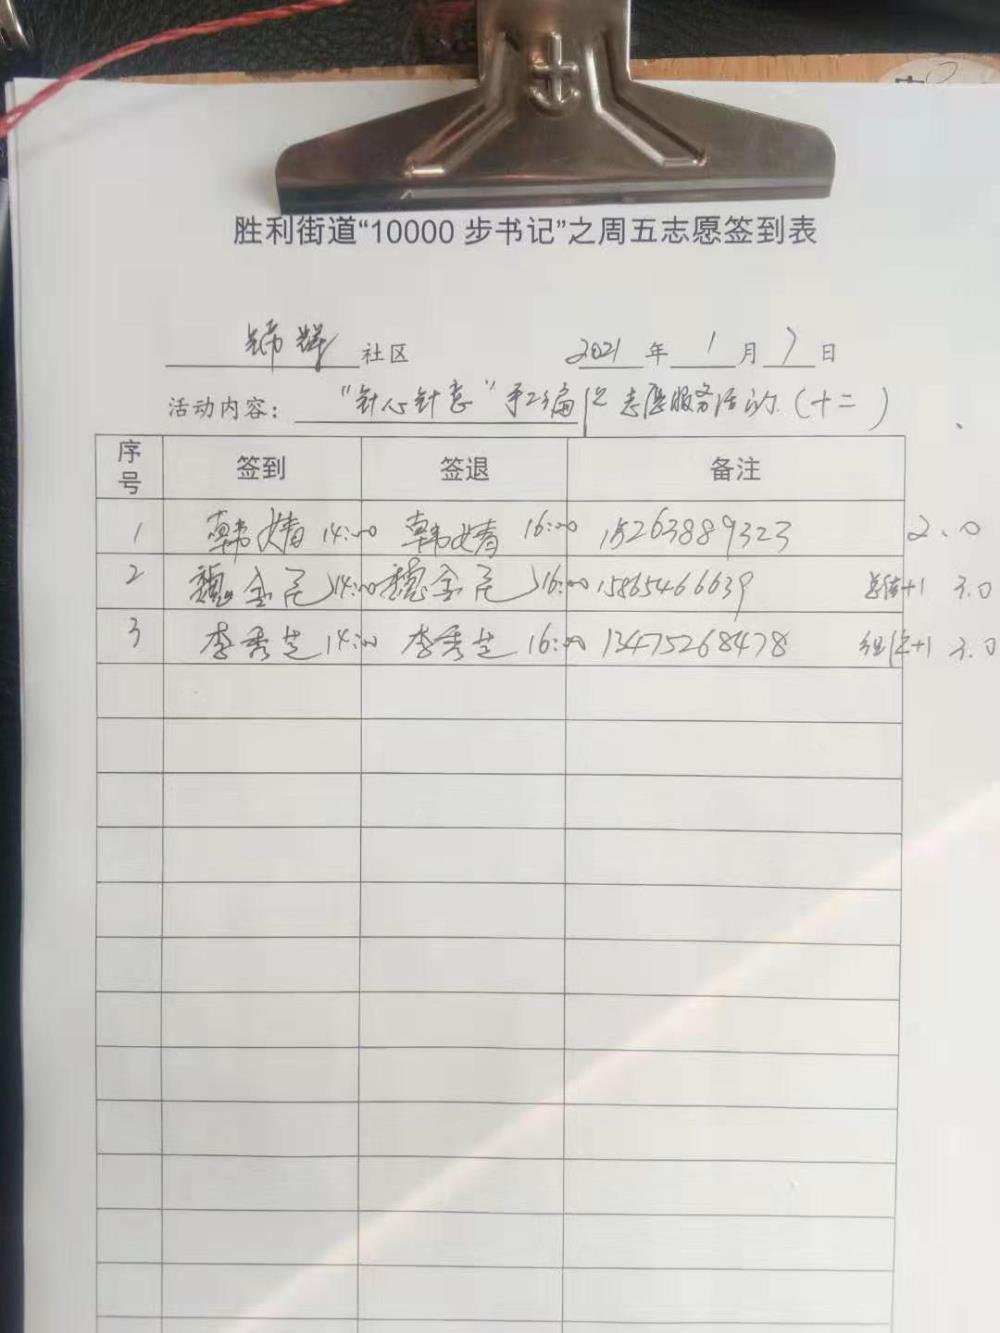 胜利街道“10000 步书记”之周五志愿签到表
锦华 社区 2021 年 1 月 7 日
活动内容： “针心针意”手工编织志愿服务活动（十二）
序号 签到 签退 备注
1 韩婧 14:00 韩婧 16:00 15263889323 2.0
2 魏金 14:00 魏金 16:00 15865466639 +1 3.0
3 李秀芝 14:00 李秀芝 16:00 13475268478 +1 3.0